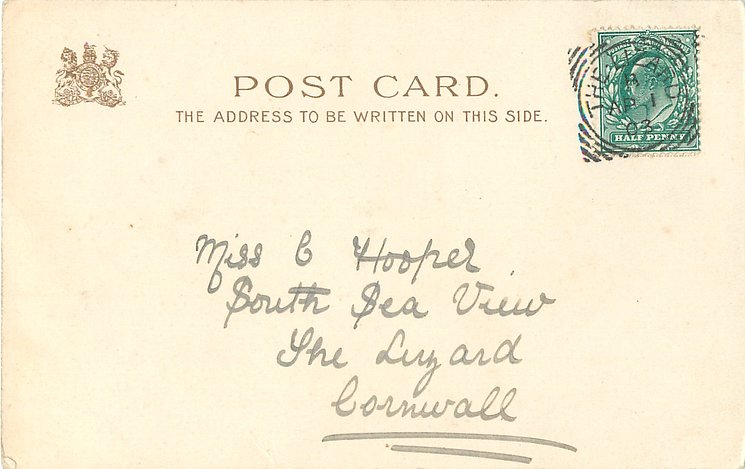 POST CARD.
THE ADDRESS TO BE WRITTEN ON THIS SIDE.
THE LIZARD
AP 1
03
HALF PENNY
Miss C Hooper
South Sea View
The Lizard
Cornwall